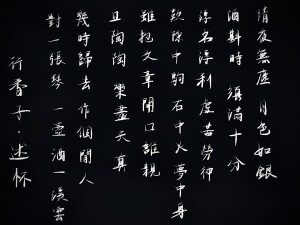 清夜無塵 月色如銀
酒斟時 須滿十分
浮名浮利 虛苦勞神
歎隙中駒 石中火 夢中身
雖抱文章 開口誰親
且陶陶 樂盡天真
幾時歸去 作個閒人
對一張琴 一壺酒 一溪雲
行香子·述怀